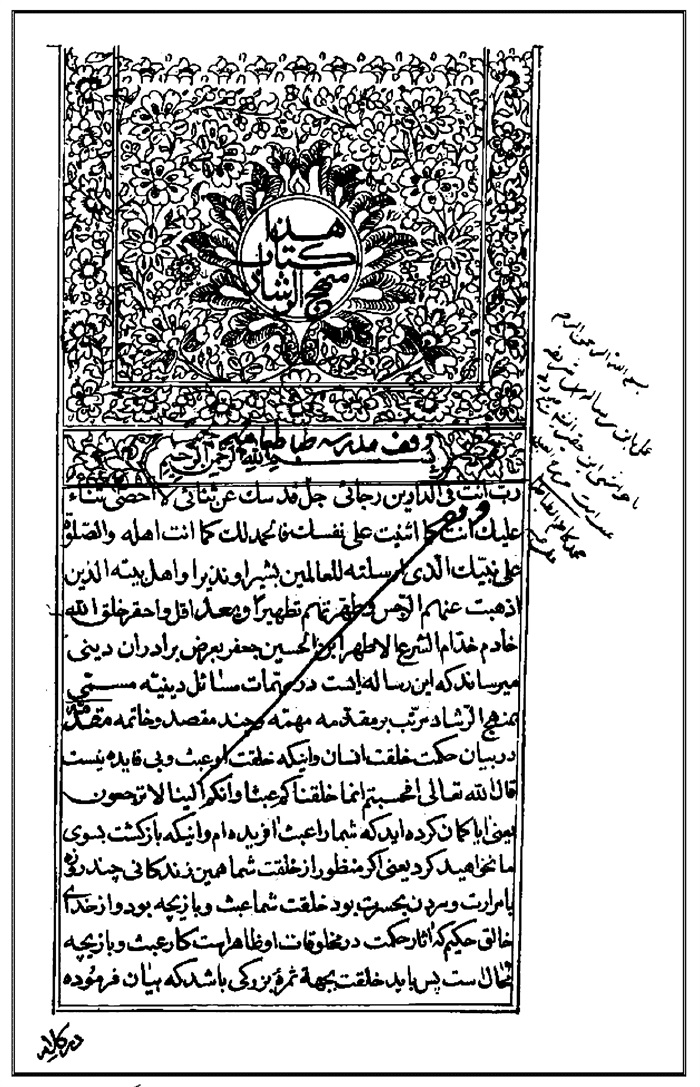 هذا
كتاب
منهج الرشاد
وقف مدرسه طباطبائیه
بسم الله الرحمن الرحیم
رب انت فی الدارین رجائی جل قدسك عن ثنائی لا احصی ثناء
علیك انت كما اثنیت علی نفسك فالحمد لك كما انت اهله والصلوة
علی نبیك الذی ارسلته للعالمین بشیرا و نذیرا و اهل بیته الذین
اذهبت عنهم الرجس و طهرتهم تطهیرا و بعد اقل و احقر خلق الله
خادم خدام الشرع الاطهر ابن الحسین جعفر بعرض برادران دینی
میرساند که این رساله ایست در مهمات مسائل دینیه مسمی
بمنهج الرشاد مرتب بر مقدمه مهمه و چند مقصد و خاتمه مقدمه
در بیان حکمت خلقت انسان و اینکه خلقت او عبث و بی فایده نیست
قال الله تعالی افحسبتم انما خلقناکم عبثا و انکم الینا لا ترجعون
یعنی ایا کمان کرده اید که شما را عبث افریده ام و اینکه بازکشت بسوی
ما نخواهید کرد یعنی اکر منظور از خلقت شما همین زندکانی چند روزه
با مرارت و مردن بحسرت بود خلقت شما عبث و بازیچه بود و از خدای
خالق حکیم که اثار حکمت در مخلوقات او ظاهر است کار عبث و بازیچه
محال است پس باید خلقت بجهة ثمرۀ بزرکی باشد که بیان فرموده
بسم الله الرحمن الرحیم